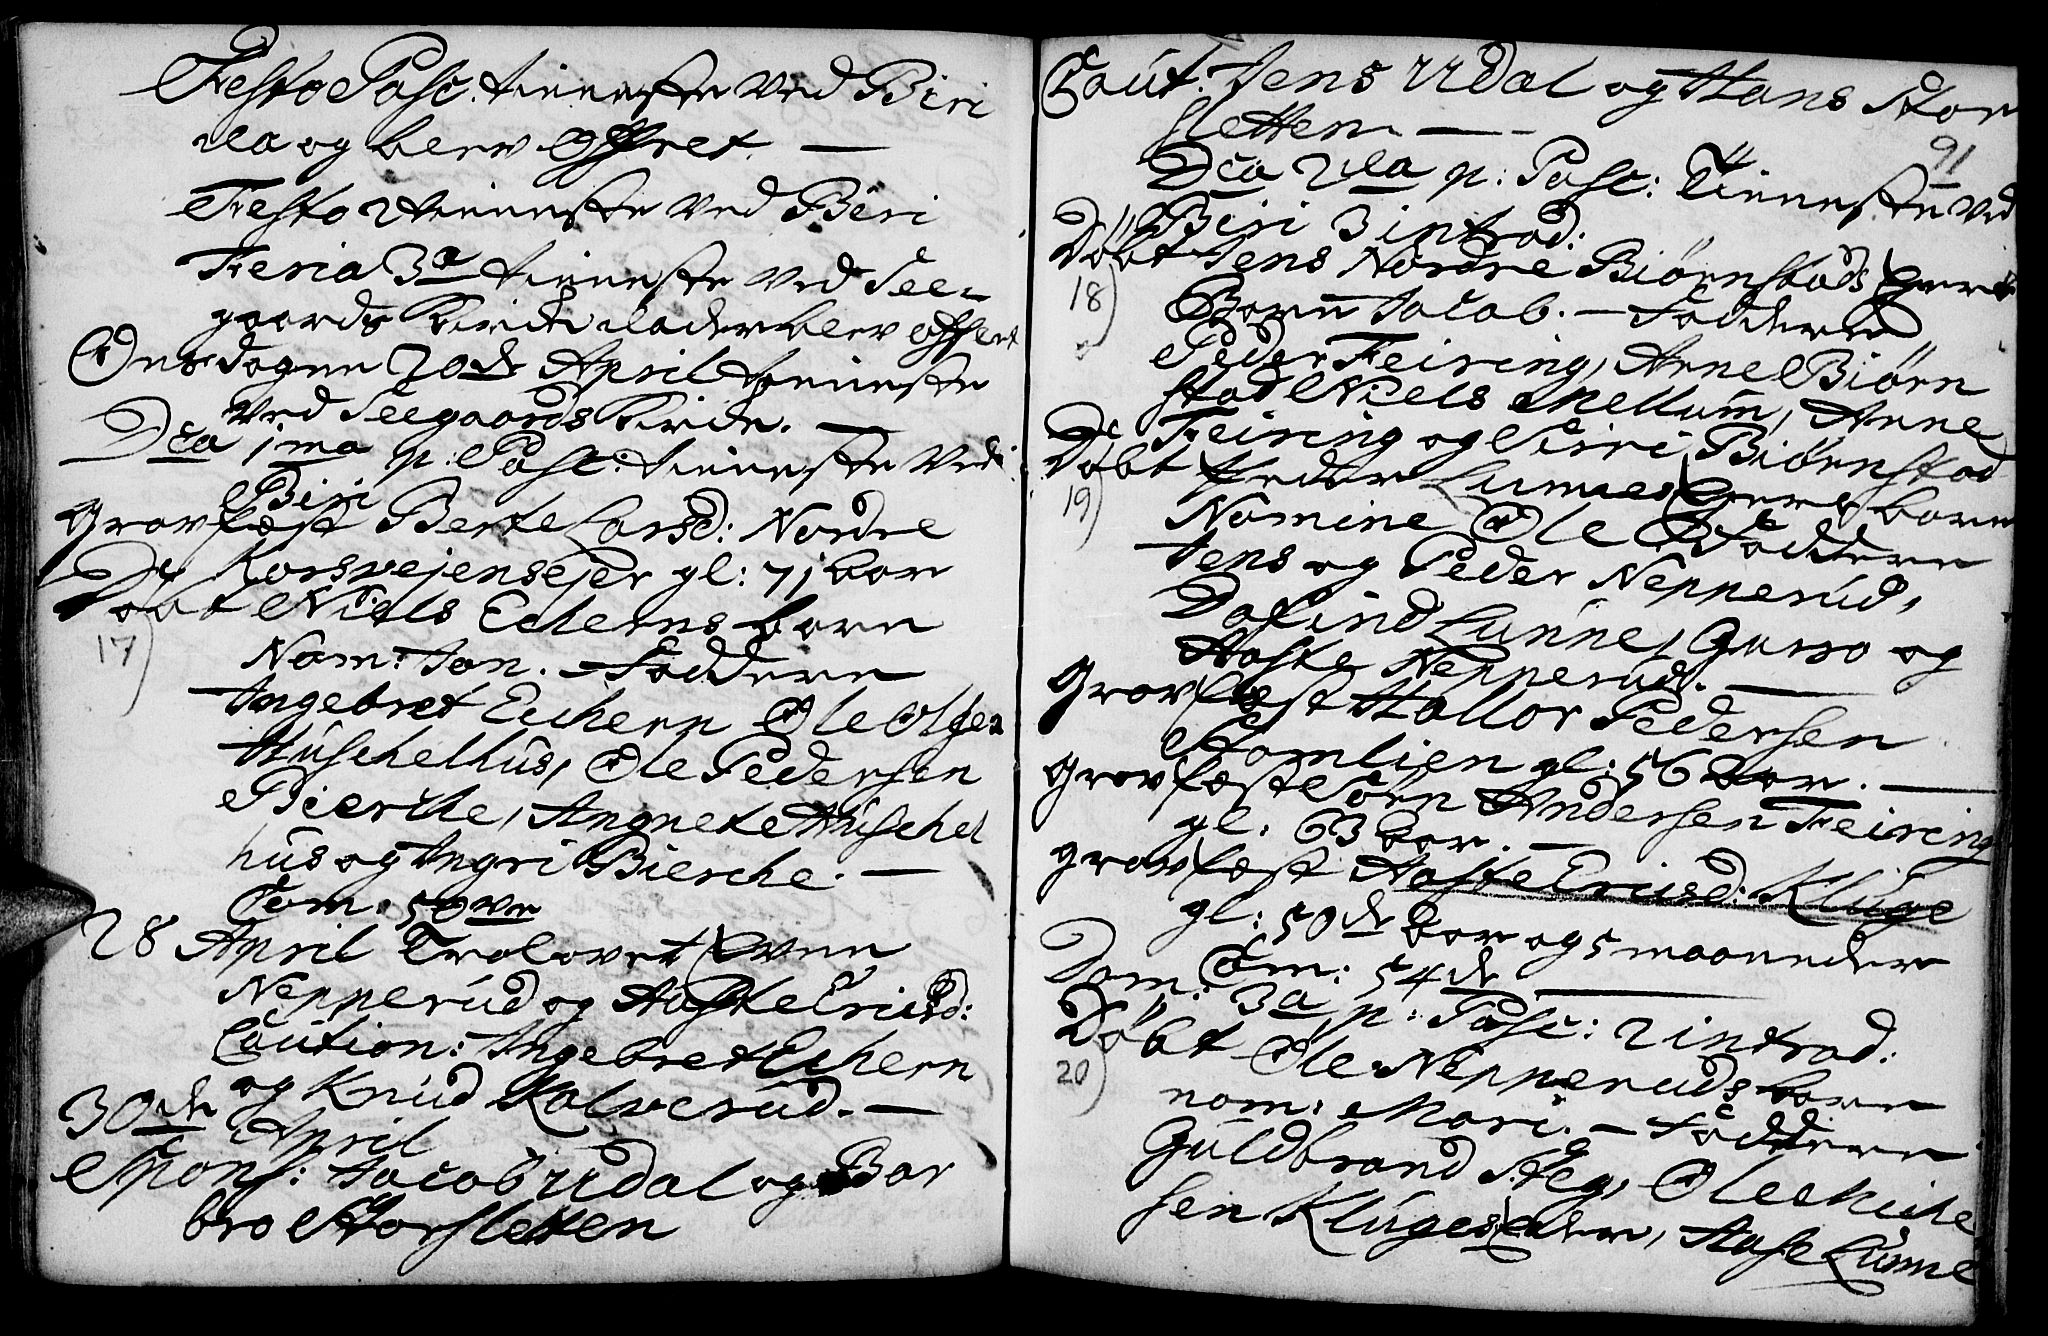 Festo Pasc: tieneste ved Biri
da og blev offret. —
Festo 2 tieneste ved Biri
Feria 3a tieneste ved See-
gaards Kirche da der blev offret
Onsdagen 20de April tieneste
ved Seegaards Kirche. —
Dca 1ma p: Pasc: tieneste ved
Biri
Gravfæst Berte Larsd: Nordre
Korsvejensejer gl: 71 aar
Døbt Niels Echerns barn
17)
Nom: Jon. — Faddere
Ingebret Echern Ole Olsen
Huschelhus, Ole Pedersen
Bierche, Angnete Huschel
hus og Ingri Bierche. —
Com: 59ve
28 April Trolovet Even
Nepperud og Aaste Ericsd:
Caution: Ingebret Echern
og Knud Kalverud. —
30de April
Spons: Jacob Udal og Bar
bro Storsletten
Caut. Jens Udal og Hans Stor
sletten —
91
Dca 2da p: Pasc: Tieneste ved
Biri 3 introd:
Døbt Jens Nordre Biørnstads
18)
Barn Jacob. — Faddere
Peder Feiring, Arne Biørn
stad Niels Mellum, Anne
Feiring og Sirri Biørnstad
Døbt Peder Lunnes barn
19)
Nomine Ole Faddere
Jens og Peder Nepperud,
Dafind Lunne, Guro og
Aaste Nepperud. —
Gravfæst Hallor Pedersen
Stomlien gl: 56 aar. —
Gravfæst Søren Andersen Feiring
gl: 63 aar. —
gravfæst Aaste Ericsd: Kluge
gl: 50de aar og 5 maaneder
Com: 54de —
Dom: 3a p: Pasc: 2 introd:
Døbt Ole Nepperuds barn
20)
nom: Mari. — Faddere
Guldbrand Steg, Ole Miche
sen Klugesejer, Aase Lunne